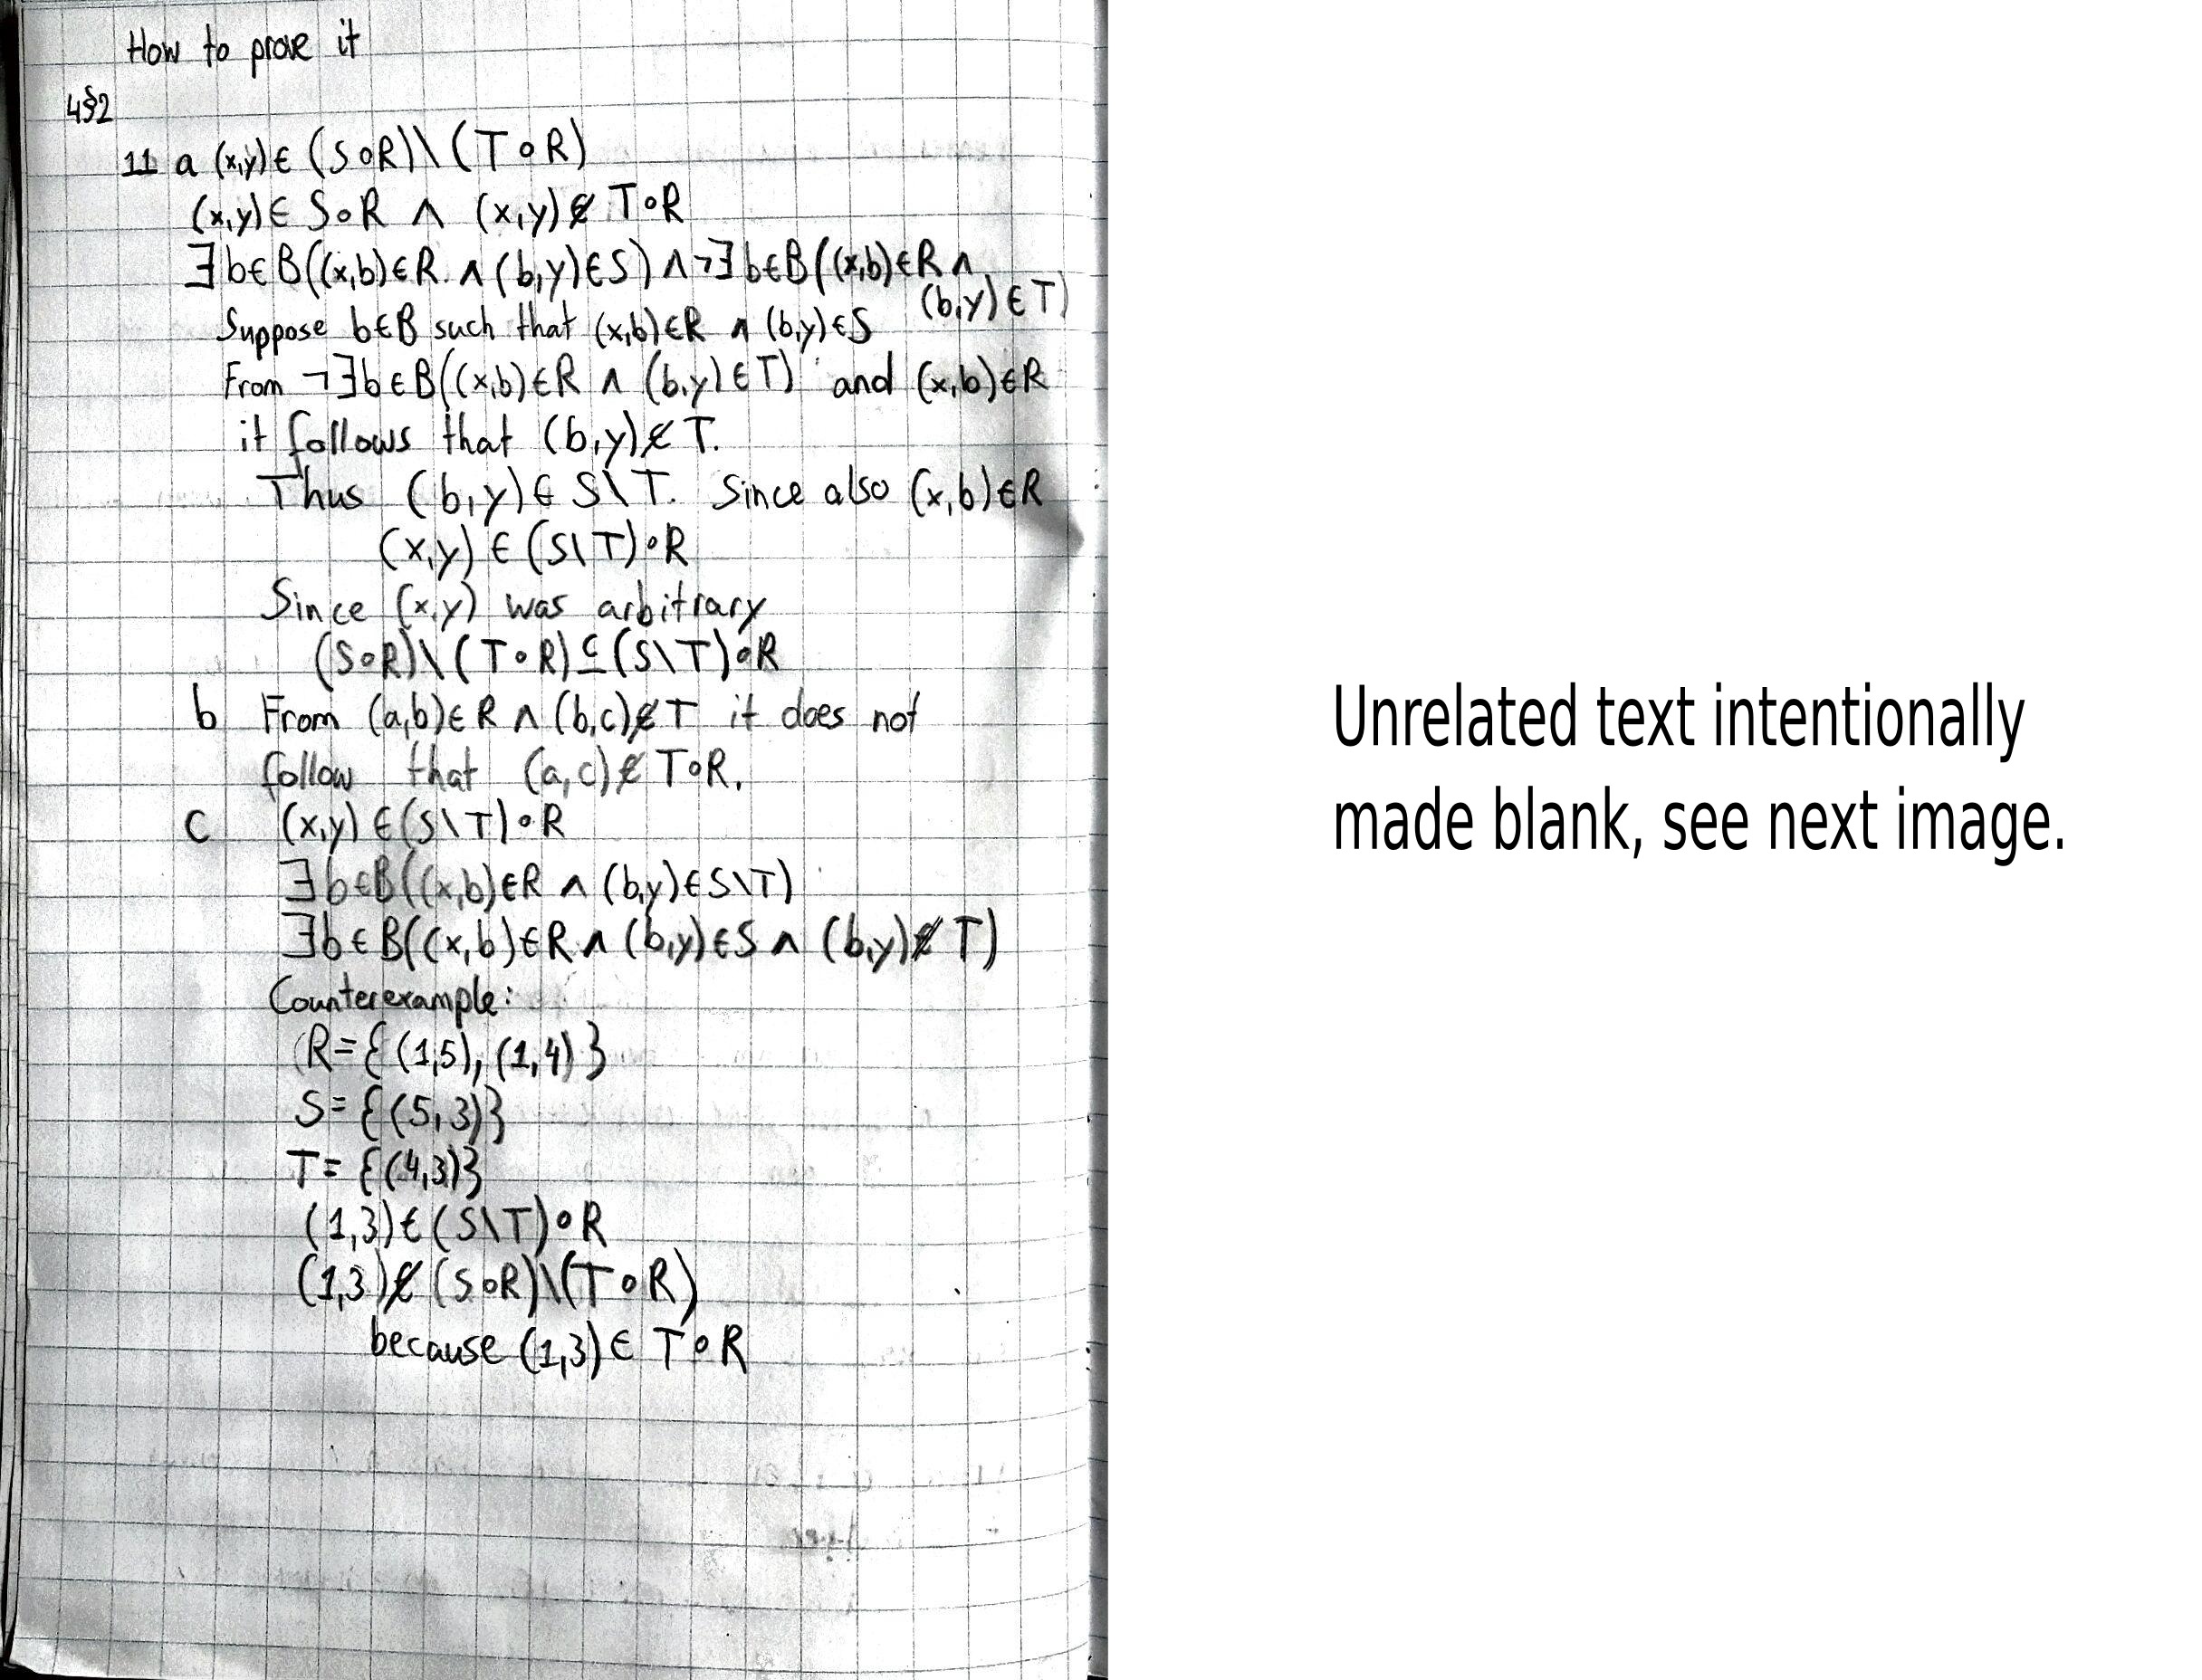 How to prove it
4§2
11 a (x,y)∈ (S∘R)\(T∘R)
(x,y)∈ S∘R ∧ (x,y)∉ T∘R
∃b∈B((x,b)∈R ∧ (b,y)∈S) ∧ ¬∃b∈B((x,b)∈R ∧
(b,y)∈T)
Suppose b∈B such that (x,b)∈R ∧ (b,y)∈S
From ¬∃b∈B((x,b)∈R ∧ (b,y)∈T) and (x,b)∈R
it follows that (b,y)∉T.
Thus (b,y)∈ S\T. Since also (x,b)∈R
(x,y)∈(S\T)∘R
Since (x,y) was arbitrary
(S∘R)\(T∘R)⊆(S\T)∘R
b From (a,b)∈R ∧ (b,c)∉T it does not
follow that (a,c)∉T∘R.
c (x,y)∈(S\T)∘R
∃b∈B((x,b)∈R ∧ (b,y)∈S\T)
∃b∈B((x,b)∈R ∧ (b,y)∈S ∧ (b,y)∉T)
Counterexample:
R={(1,5),(1,4)}
S={(5,3)}
T={(4,3)}
(1,3)∈(S\T)∘R
(1,3)∉(S∘R)\(T∘R)
because (1,3)∈ T∘R
Unrelated text intentionally
made blank, see next image.